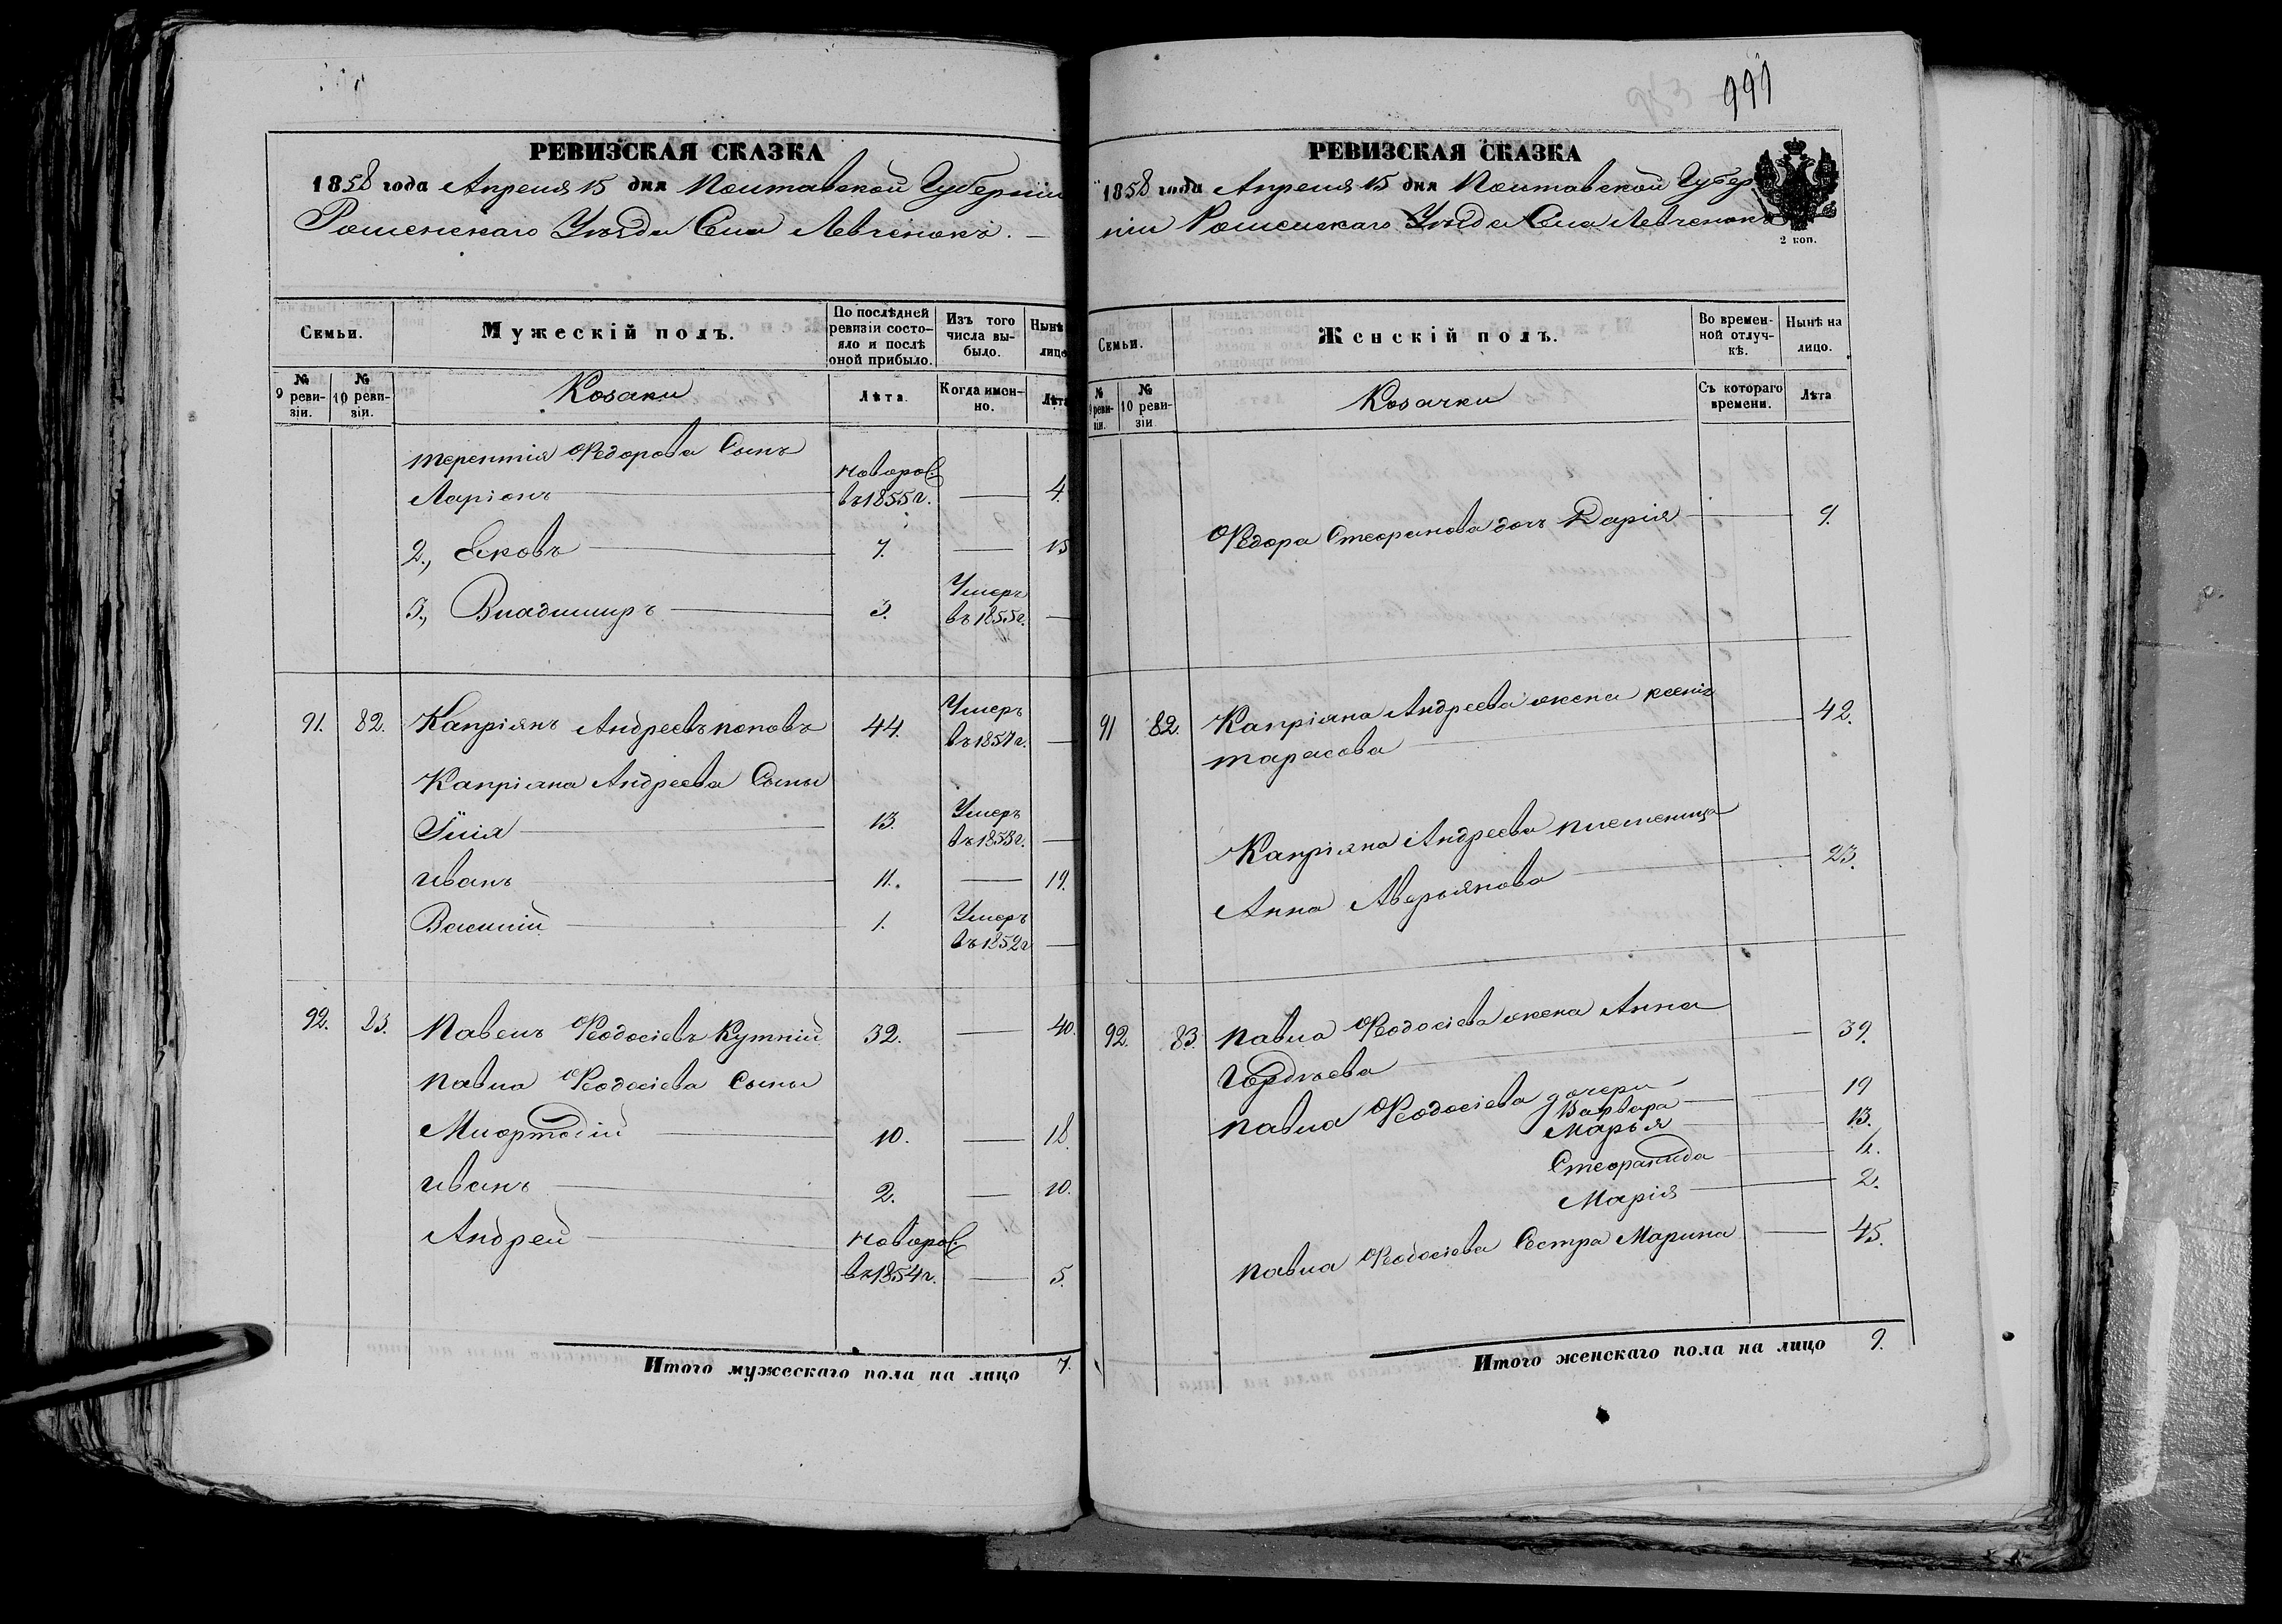 РЕВИЗСКАЯ СКАЗКА
1858 года Апреля 15 дня Полтавской Губерніи
Роменскаго Уѣзда Села Левченокъ.
Семьи.
Мужескій полъ.
По послѣдней ревизіи состояло и послѣ оной прибыло.
Изъ того числа выбыло.
Нынѣ лицо
№ 9 ревизіи.
№ 10 ревизіи.
Козаки
Лѣта.
Когда именно.
Лѣта
Терентія Федорова Сынъ
Ларіонъ новорож: въ 1855 г. — 4.
2., Яковъ 7. — 15
3., Владимиръ 3. Умеръ въ 1855 г. —
91. 82. Капріянъ Андреевъ Поповъ 44. Умеръ въ 1857 г. —
Капріяна Андреева Сыны
Илія 13. Умеръ въ 1853 г. —
Иванъ 11. — 19.
Василій 1. Умеръ въ 1852 г —
92. 83. Павелъ Феодосіевъ Кутній 32. — 40.
Павла Феодосіева Сыны
10. — 18.
Иванъ 2. — 10.
Андрей новорож: въ 1854 г. — 5.
Итого мужескаго пола на лицо 7.
983 999
РЕВИЗСКАЯ СКАЗКА
1858 года Апреля 15 дня Полтавской Губер
ніи Роменскаго Уѣзда Села Левченокъ
2 коп.
Семьи.
Женскій полъ.
Во временной отлучкѣ.
Нынѣ на лицо.
№ 9 ревизіи.
№ 10 ревизіи
Козачки
Съ котораго времени.
Лѣта
Федора Стефанова дочь Дарія — 9.
91 82. Капріяна Андреева жена Ксенія
Тарасова — 42.
Капріяна Андреева племеница
Анна Аверьянова — 23.
92. 83. Павла Феодосіева жена Анна
Гордѣева — 39.
Павла Феодосіева дочери
Варвара — 19
Марья — 13.
Стефанида —
Марія — 2.
Павла Феодосіева Сестра Марина — 45.
Итого женскаго пола на лицо 9.